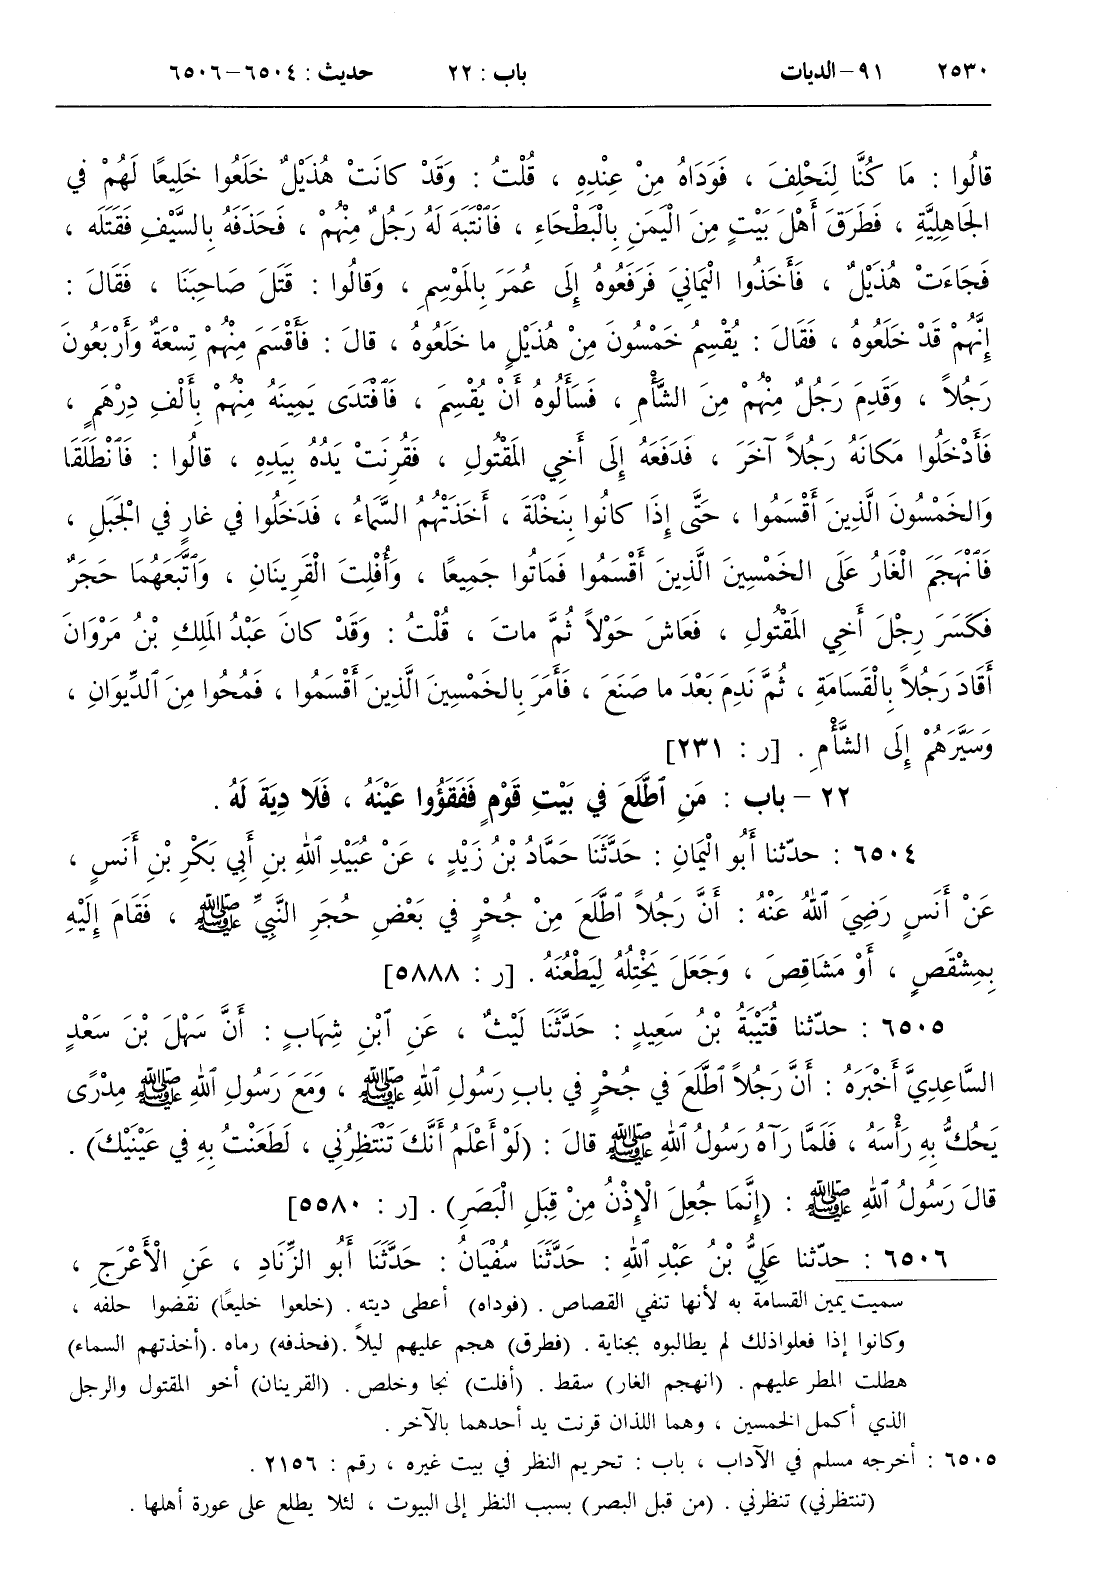 ٢٥٣٠ ٩١-الديات باب : ٢٢ حديث : ٦٥٠٤-٦٥٠٦
قالُوا : مَا كُنَّا لِنَحْلِفَ ، فَوَدَاهُ مِنْ عِنْدِهِ ، قُلْتُ : وَقَدْ كانَتْ هُذَيْلٌ خَلَعُوا خَلِيعًا لَهُمْ في
الجَاهِلِيَّةِ ، فَطَرَقَ أَهْلَ بَيْتٍ مِنَ الْيَمَنِ بِالْبَطْحَاءِ ، فَٱنْتَبَهَ لَهُ رَجُلٌ مِنْهُمْ ، فَحَذَفَهُ بِالسَّيْفِ فَقَتَلَه ،
فَجَاءَتْ هُذَيْلٌ ، فَأَخَذُوا الْيمَانِيَ فَرَفَعُوهُ إِلَى عُمَرَ بِالمَوْسِمِ ، وَقالُوا : قَتَلَ صَاحِبَنَا ، فَقَالَ :
إِنَّهُمْ قَدْ خَلَعُوهُ ، فَقَالَ : يُقْسِمُ خَمْسُونَ مِنْ هُذَيْلٍ ما خَلَعُوهُ ، قالَ : فَأَقْسَمَ مِنْهُمْ تِسْعَةٌ وَأَرْبَعُونَ
رَجُلاً ، وَقَدِمَ رَجُلٌ مِنْهُمْ مِنَ الشَّأْمِ ، فَسَأَلُوهُ أَنْ يُقْسِمَ ، فَٱفْتَدَى يَمِينَهُ مِنْهُمْ بِأَلْفِ دِرْهَمٍ ،
فَأَدْخَلُوا مَكانَهُ رَجُلاً آخَرَ ، فَدَفَعَهُ إِلَى أَخِي المَقْتُولِ ، فَقُرِنَتْ يَدُهُ بِيَدِهِ ، قالُوا : فَٱنْطَلَقَا
وَالخَمْسُونَ الَّذِينَ أَقْسَمُوا ، حَتَّى إِذَا كانُوا بِنَخْلَةَ ، أَخَذَتْهُمُ السَّمَاءُ ، فَدَخَلُوا في غارٍ في الْجَبَلِ ،
فَٱنْهَجَمَ الْغَارُ عَلَى الخَمْسِينَ الَّذِينَ أَقْسَمُوا فَمَاتُوا جَمِيعًا ، وَأُفْلِتَ الْقَرِينَانِ ، وَٱتَّبَعَهُمَا حَجَرٌ
فَكَسَرَ رِجْلَ أَخِي المَقْتُولِ ، فَعَاشَ حَوْلاً ثُمَّ ماتَ ، قُلْتُ : وَقَدْ كانَ عَبْدُ المَلِكِ بْنُ مَرْوَانَ
أَقَادَ رَجُلاً بِالْقَسَامَةِ ، ثُمَّ نَدِمَ بَعْدَ ما صَنَعَ ، فَأَمَرَ بِالخَمْسِينَ الَّذِينَ أَقْسَمُوا ، فَمُحُوا مِنَ ٱلدِّيوَانِ ،
وَسَيَّرَهُمْ إِلَى الشَّأْمِ . [ر : ٢٣١]
٢٢ - باب : مَنِ ٱطَّلَعَ في بَيْتِ قَوْمٍ فَفَقَؤُوا عَيْنَهُ ، فَلَا دِيَةَ لَهُ .
٦٥٠٤ : حدّثنا أَبُو الْيَمَانِ : حَدَّثَنَا حَمَّادُ بْنُ زَيْدٍ ، عَنْ عُبَيْدِ ٱللهِ بنِ أَبِي بَكْرِ بْنِ أَنَسٍ ،
عَنْ أَنَسٍ رَضِيَ ٱللهُ عَنْهُ : أَنَّ رَجُلاً ٱطَّلَعَ مِنْ جُحْرٍ في بَعْضِ حُجَرِ النَّبِيِّ ﷺ ، فَقَامَ إِلَيْهِ
بِمِشْقَصٍ ، أَوْ مَشَاقِصَ ، وَجَعَلَ يَخْتِلُهُ لِيَطْعُنَهُ . [ر : ٥٨٨٨]
٦٥٠٥ : حدّثنا قُتَيْبَةُ بْنُ سَعِيدٍ : حَدَّثَنَا لَيْثٌ ، عَنِ ٱبْنِ شِهَابٍ : أَنَّ سَهْلَ بْنَ سَعْدٍ
السَّاعِدِيَّ أَخْبَرَهُ : أَنَّ رَجُلاً ٱطَّلَعَ في جُحْرٍ في بابِ رَسُولِ ٱللهِ ﷺ ، وَمَعَ رَسُولِ ٱللهِ ﷺ مِدْرًى
يَحُكُّ بِهِ رَأْسَهُ ، فَلَمَّا رَآهُ رَسُولُ ٱللهِ ﷺ قالَ : (لَوْ أَعْلَمُ أَنَّكَ تَنْتَظِرُنِي ، لَطَعَنْتُ بِهِ في عَيْنَيْكَ) .
قالَ رَسُولُ ٱللهِ ﷺ : (إِنَّمَا جُعِلَ الْإِذْنُ مِنْ قِبَلِ الْبَصَرِ) . [ر : ٥٥٨٠]
٦٥٠٦ : حدّثنا عَلِيُّ بْنُ عَبْدِ ٱللهِ : حَدَّثَنَا سُفْيَانُ : حَدَّثَنَا أَبُو الزِّنَادِ ، عَنِ الْأَعْرَجِ ،
سميت يمين القسامة به لأنها تنفي القصاص . (فوداه) أعطى ديته . (خلعوا خليعًا) نقضوا حلفه ،
وكانوا إذا فعلواذلك لم يطالبوه بجناية . (فطرق) هجم عليهم ليلاً .(فحذفه) رماه .(أخذتهم السماء)
هطلت المطر عليهم . (انهجم الغار) سقط . (أفلت) نجا وخلص . (القرينان) أخو المقتول والرجل
الذي أكمل الخمسين ، وهما اللذان قرنت يد أحدهما بالآخر .
٦٥٠٥ : أخرجه مسلم في الآداب ، باب : تحريم النظر في بيت غيره ، رقم : ٢١٥٦ .
(تنتظرني) تنظرني . (من قبل البصر) بسبب النظر إلى البيوت ، لئلا يطلع على عورة أهلها .